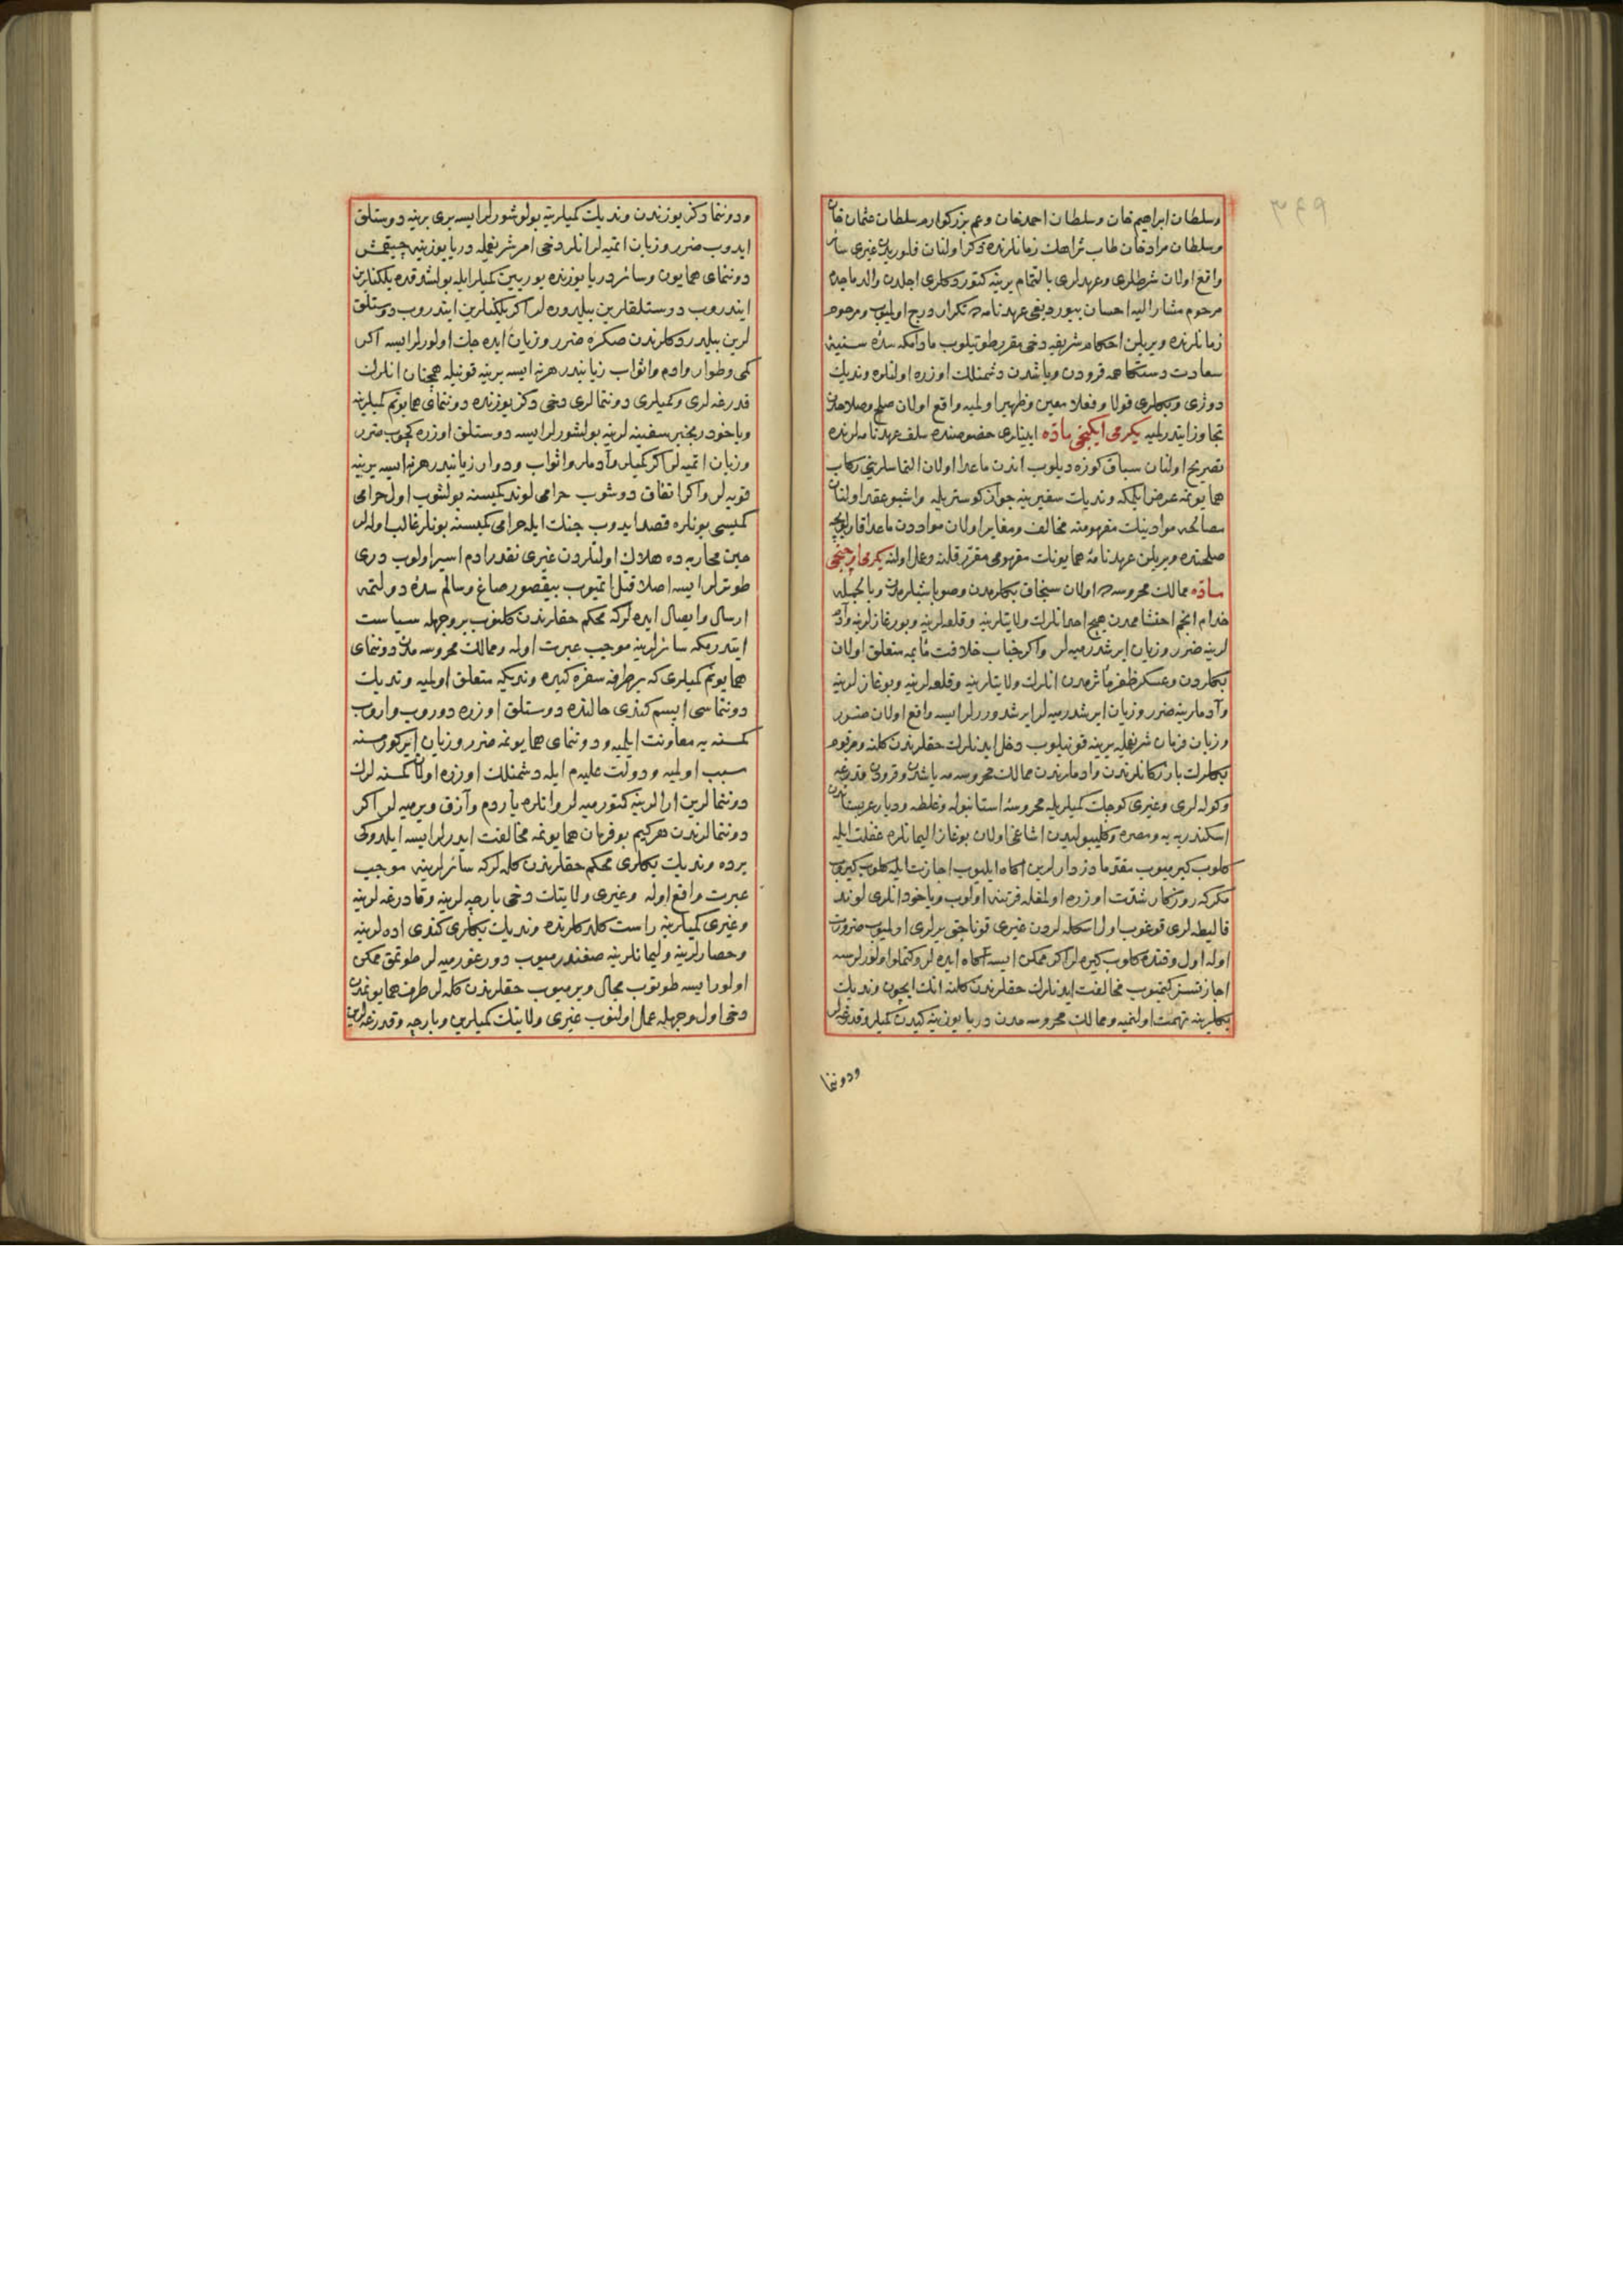 وسلطان ابراهيم خان وسلطان احمد خان وعم بزركوارم سلطان عثمان خان
وسلطان مراد خان طاب ثراهك زمانلرنده ذكر اولنان فلوريدن غيرى
واقع اولان شرطلرى وعهدلرى بالتمام يرينه كتوردكلرى اجلدن والد ماجدم
مرحوم مشار اليه احسان بيوردیغى عهدنامه ده تكرار درج اولميوب ومرحوم
زمانلرنده ويريلن احكام شريفه دخى مقرر طوتيلوب مادامكه سدۀ سنيۀ
سعادت دستكاهمه قرودن وياشدن دشمنلك اوزره اولنلره ونديك
دوژى وبكلرى قولا وفعلا معين وظهير اولميه واقع اولان صلح وصلاحدن
تجاوز ايتدرلميه يكرمى ايكنجى ماده ابنيلرى خصوصنده سلف عهدنامه لرنده
تصريح اولنان سياق كوزه ديلوب اندن ماعدا اولان التماسلرينى ركاب
همايونمه عرض ايلمكه ونديك سفيرينه جواز كوستريله واشبو عقد اولنان
مصالحه موادينك مفهومنه مخالف ومغاير اولان موادن ماعدا قارلوفچه
صلحنده ويريلن عهدنامۀ همايونك مفهومى مقرر قلنه وعمل اولنه يكرمى اوچنجى
ماده ممالك محروسه ده اولان سنجاق بكلرمدن وصوباشيلرمدن وبالجمله
خدام انجم احتشاممدن هيچ احد انلرك ولايتلرينه وقلعه لرينه وبوغازلرينه وآدم
لرينه ضرر وزيان ايرشدرميه لر واكر جناب خلافت مآبمه متعلق اولان
بكلردن وعسكر ظفر مأثرمدن انلرك ولايتلرينه وقلعه لرينه وبوغازلرينه
وآدملرينه ضرر وزيان ايرشدرميه لر ايرشدوررلر ايسه واقع اولان ضرر
وزيان فرمان شريفمله يرينه قونيلوب دخل ايدنلرك حقلرندن كلنه ومرقوم
بكلرك بازركانلرندن وادملرندن ممالك محروسه مه ياشدن وقرودن قدرغه
وكوكه لرى وغيرى كوچك كميلريله محروسۀ استانبوله وغلطه وديار عربستاندن
اسكندريه يه ومصره وكليبوليدن اشاغى اولان بوغاز اليمانلره غفلت ايله
كلوب كيرميوب مقدما دزدارلرين اكاه ايليوب اجازت ايله كلوب كيروب
مكركه روزكار شدت اوزره اولمغله فرتنه اولوب وياخود انلرى لوند
قاليطه لرى قوغوب اول اسكله لردن غيرى قوناجق يرلرى اولميوب ضرورت
اوله اول وقتده كلوب كيره لر اكر ممكن ايسه اكاه ايده لر وكتملو اولورلرسه
اجازتسز كيتميوب مخالفت ايدنلرك حقلرندن كلنه انك ايچون ونديك
بكلرينه تهمت اولنميه وممالك محروسه مدن دريا يوزينه كيدن كميلر وقدرغه لر
ودوننما
ودوننما دكز يوزندن ونديك كميلرينه بولوشورلر ايسه برى برينه دوستلق
ايدوب ضرر وزيان اتميه لر انلر دخى امر شريفمله دريا يوزينه چيقمش
دوننماى همايون وسائر دريا يوزنده يوريين كميلر ايله بولشدقده يلكنلرين
ايندروب دوستلقلرين بيلدوره لر اكر يلكنلرين ايندروب دوستلق
لرين بيلدردكلرندن صكره ضرر وزيان ايده جك اولورلر ايسه اكر
كمى وطوار وادم واثواب زيانيدر هرنه ايسه يرينه قونيله همچنان انلرك
قدرغه لرى وكميلرى دوننمالرى دخى دكز يوزنده دوننماى همايونم كميلرينه
وياخود رنجبر سفينه لرينه بولشورلر ايسه دوستلق اوزره كچوب ضرر
وزيان اتميه لر اكر كميلر وآدملر واثواب ودوار زيانيدر هرنه ايسه يرينه
قويه لر واكر اتفاق دوشوب حرامى لوند كميسنه بولشوب اول حرامى
كميسى بونلره قصد ايدوب جنك ايله حرامى كميسنه بونلر غالب اوله لر
حين محاربه ده هلاك اولنلردن غيرى نقدر ادم اسير اولوب ديرى
طوترلر ايسه اصلا قتل اتميوب بيقصور صاغ وسالم سدۀ دولتمه
ارسال وايصال ايده لركه محكم حقلرندن كلنوب بر وجهله سياست
ايتدرمكه سائرلرينه موجب عبرت اوله وممالك محروسه مدن دوننماى
همايونم كميلرى كه بر طرفه سفره كيده ونديكه متعلق اولميه ونديك
دوننماسى ايسم كندى حالنده دوستلق اوزره دوروب واروب
كمسنه يه معاونت ايلميه ودوننماى همايونمه ضرر وزيان ايركورمسنه
سبب اولميه ودولت عليه م ايله دشمنلك اوزره اولان كمسنه لرك
دوننمالرين ارالرينه كتورميه لر وانلره ياردم وآزق ويرميه لر اكر
دوننمالرندن هركيم بو فرمان همايونمه مخالفت ايدرلر ايسه ايلدوكى
يرده ونديك بكلرى محكم حقلرندن كله لركه سائرلرينه موجب
عبرت واقع اوله وغيرى ولايتك دخى بارچه لرينه وقادرغه لرينه
وغيرى كميلرينه راست كلدكلرنده ونديك بكلرى كندى اده لرينه
وحصارلرينه وليمانلرينه صغندرميوب دورغورميه لر طوتمق ممكن
اولور ايسه طوتوب مجال ويرميوب حقلرندن كله لر طرف همايونمدن
دخى اول وجهله عمل اولنوب غيرى ولايتك كميلرين وبارچه وقدرغه لرين